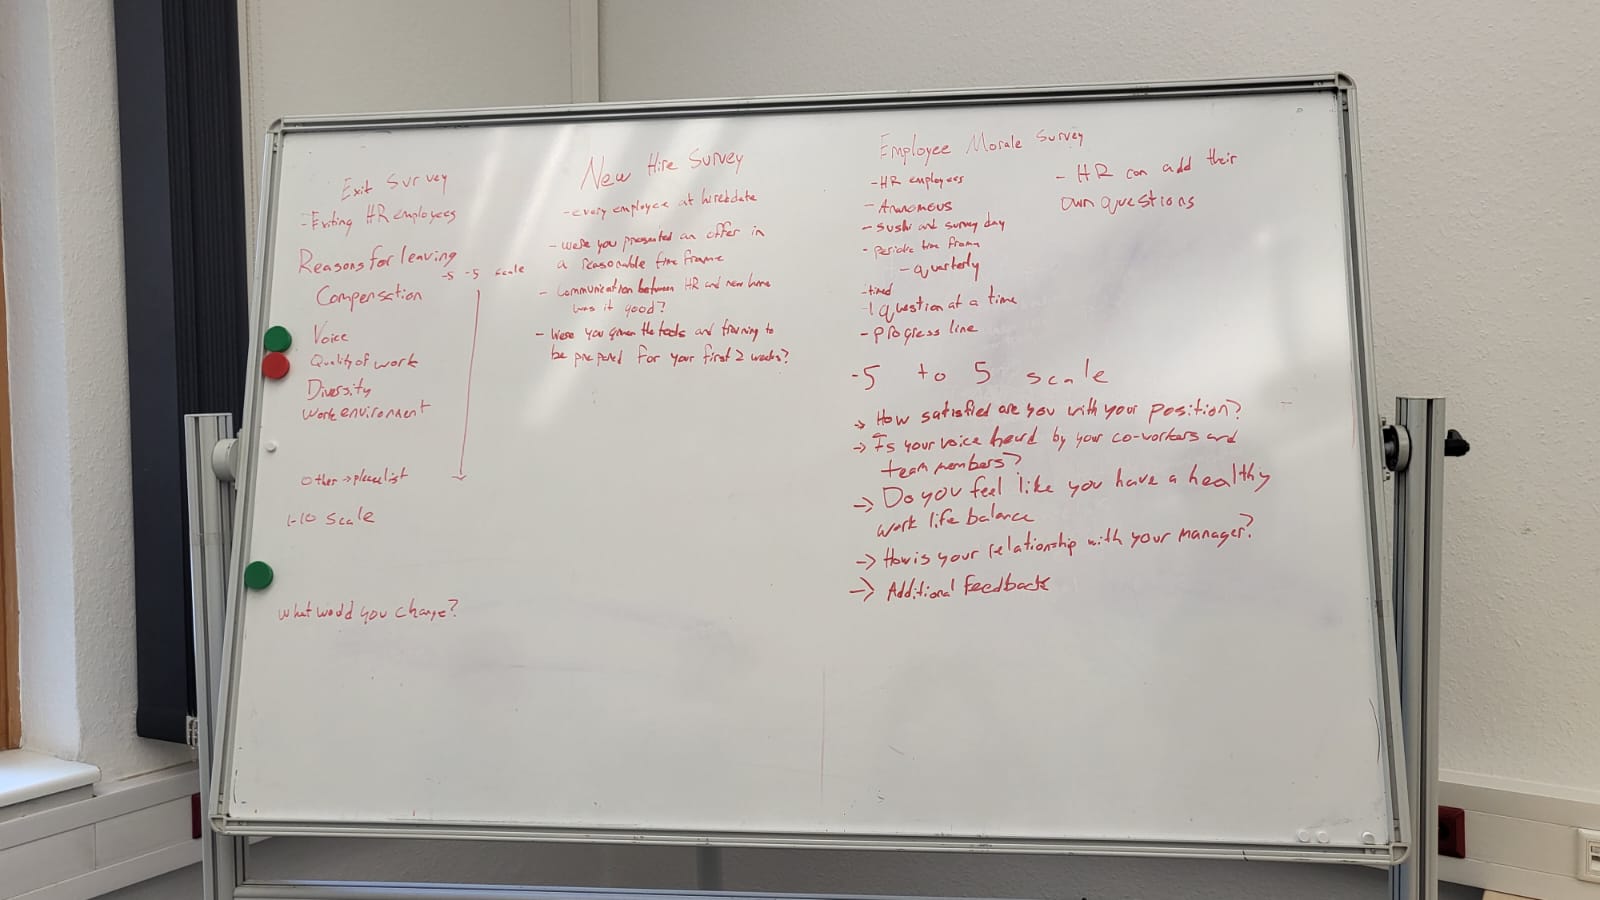 Exit Survey
-Exiting HR employees
Reasons for leaving
-5 -5 scale
Compensation
Voice
Quality of work
Diversity
work environment
other → please list
1-10 scale
what would you change?
New Hire Survey
-every employee at hiredate
- were you presented an offer in
a reasonable time frame
- Communication between HR and new hire
was it good?
- Were you given the tools and training to
be prepared for your first 2 weeks?
Employee Morale Survey
-HR employees
- Ananomous
- sushi and survey day
- periodic time frame
- quarterly
-timed
-1 question at a time
- progress line
- HR can add their
own questions
-5 to 5 scale
→ How satisfied are you with your position?
→ Is your voice heard by your co-workers and
team members?
→ Do you feel like you have a healthy
work life balance
→ How is your relationship with your manager?
→ Additional Feedback